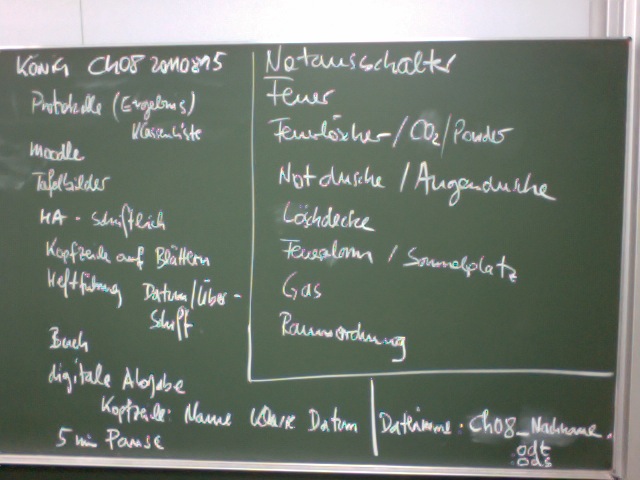 König Ch08 20110815
Protokolle (Ergebnis)
Klassenliste
moodle
Tafelbilder
HA - schriftlich
Kopfzeile auf Blättern
Heftführung Datum/Über-
schrift
Buch
digitale Abgabe
Kopfzeile: Name Klasse Datum
5 min Pause
Notausschalter
Feuer
Feuerlöscher/CO2/Pulver
Notdusche/Augendusche
Löschdecke
Feueralarm/Sammelplatz
Gas
Raumordnung
Dateiname: Ch08_Nachname.
odt
ods